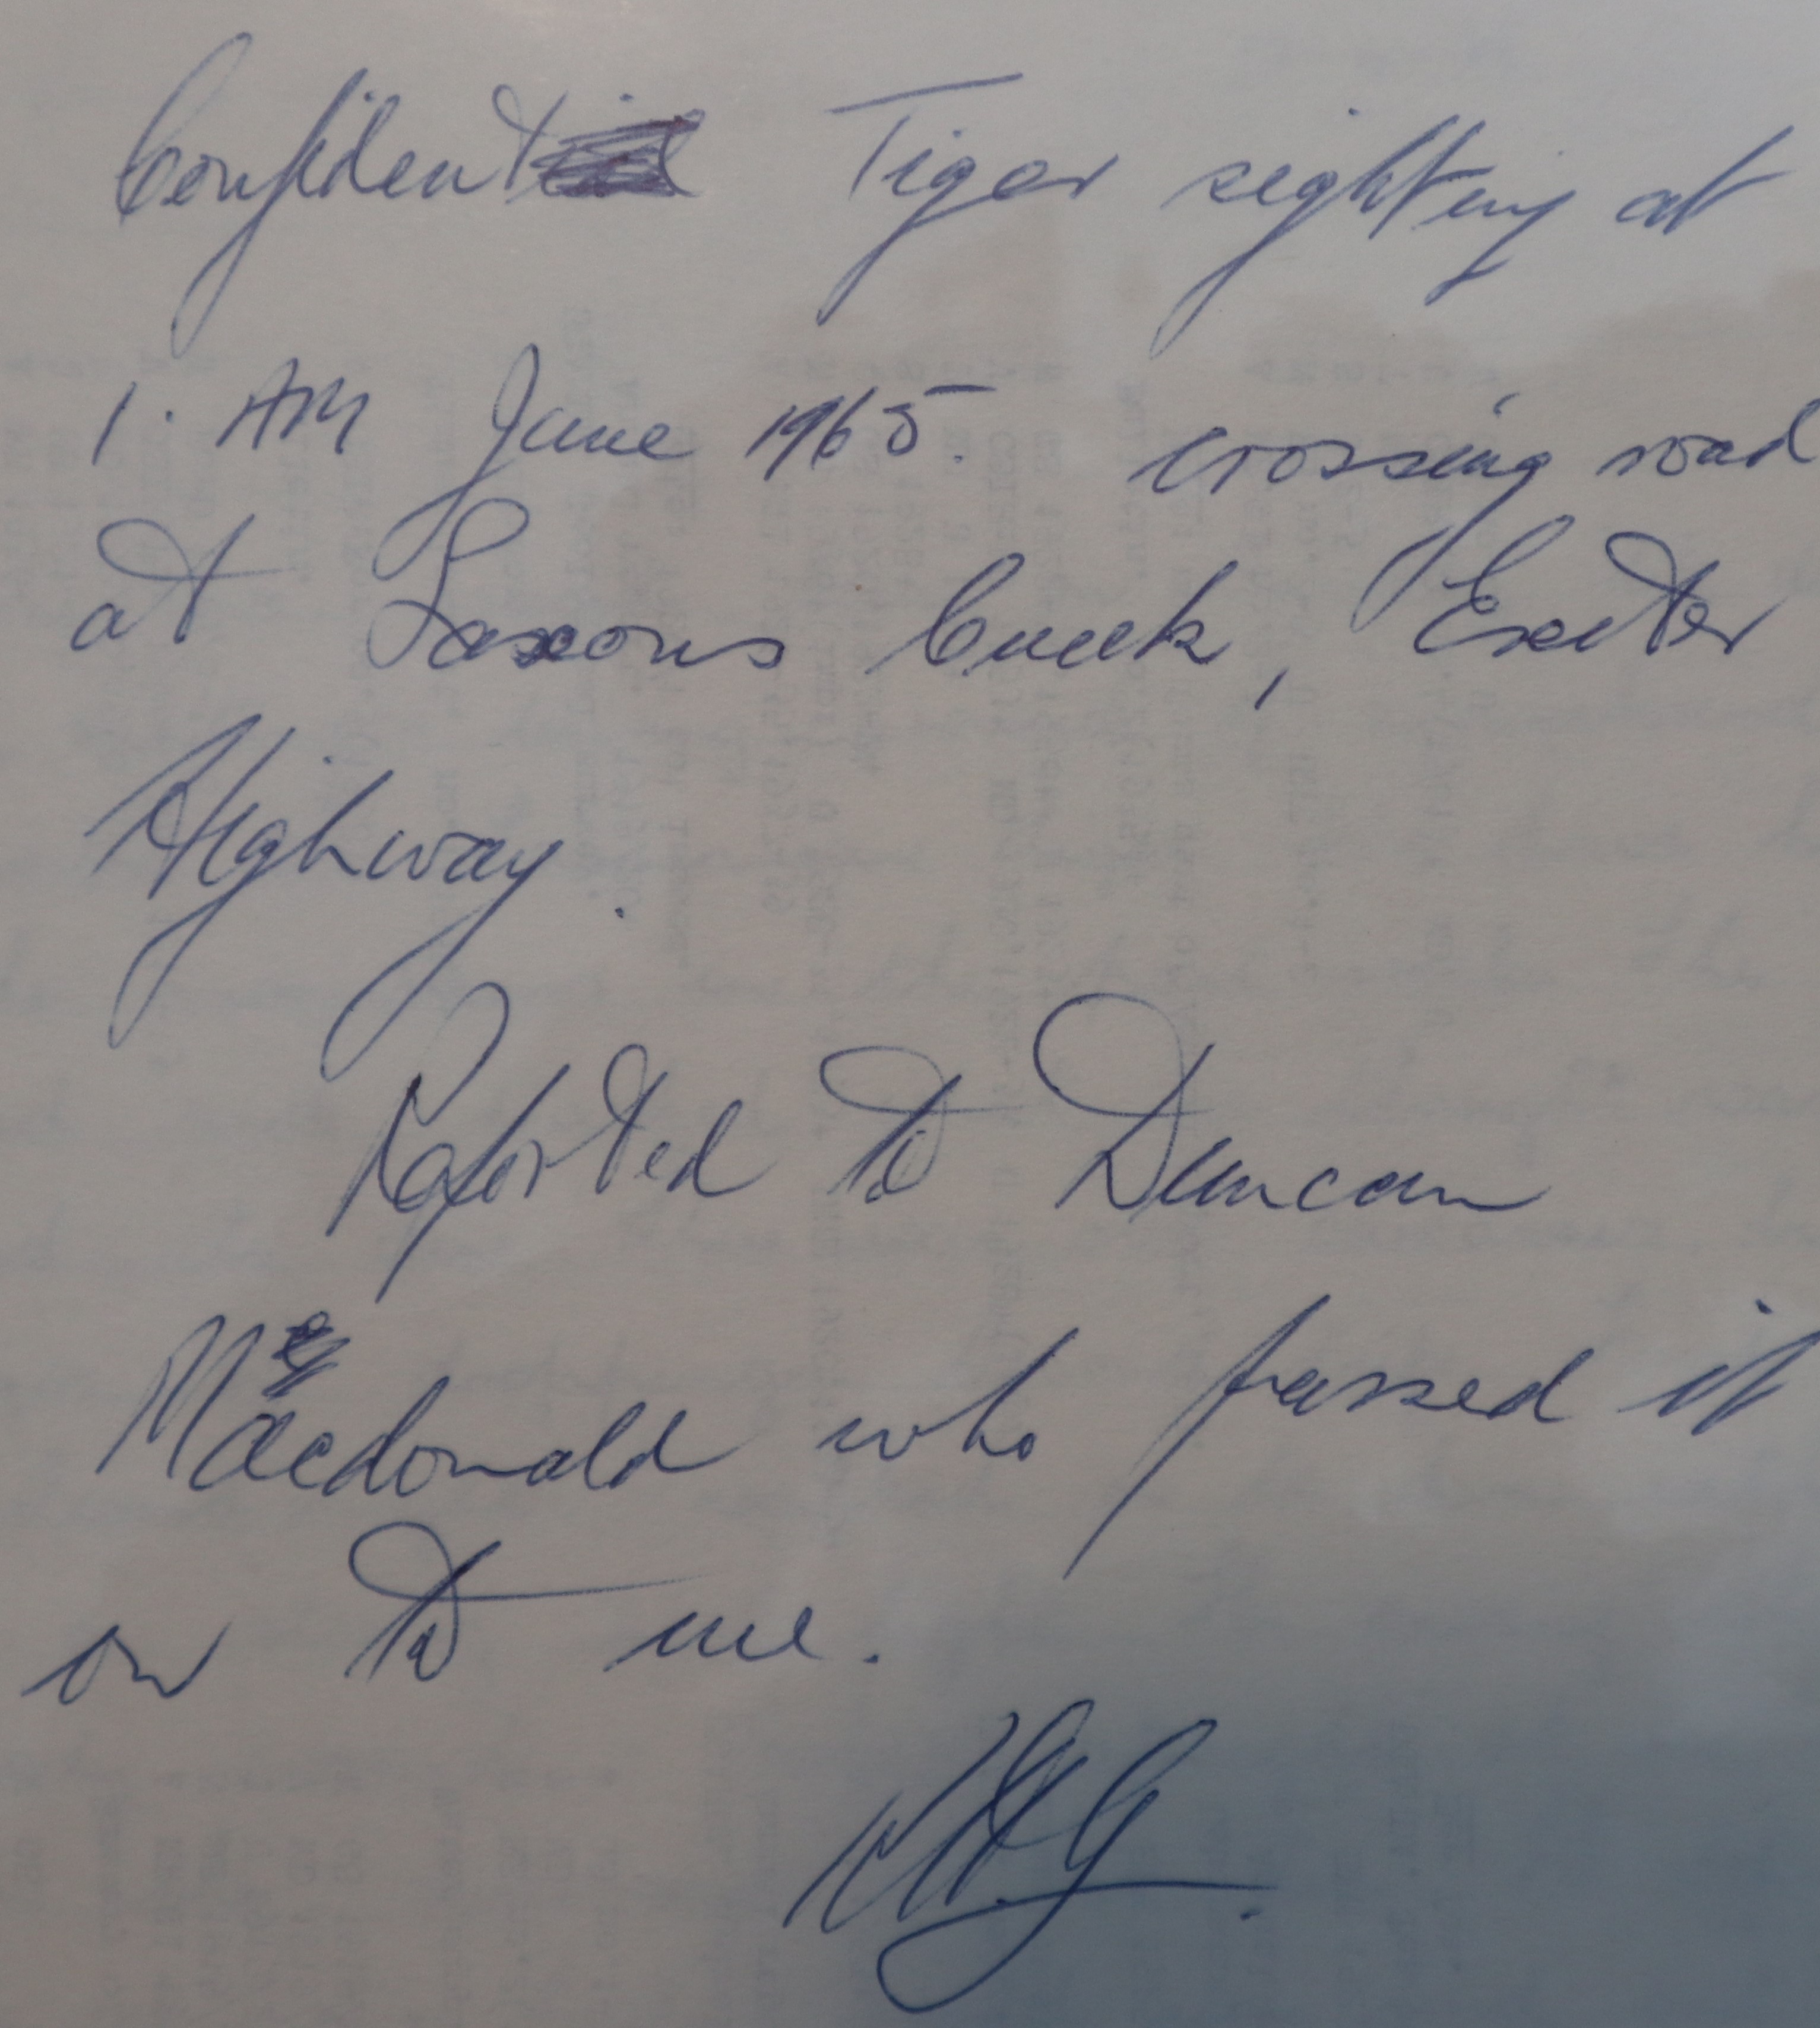 Confident Tiger sighting at
1. AM June 1965. crossing road
at Saxons Creek, Exeter
Highway.
Reported to Duncan
Macdonald who passed it
on to me.